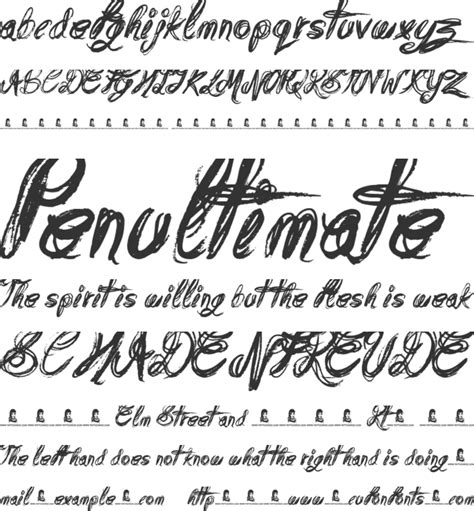 abcdefghijklmnopqrstuvwxyz
ABCDEFGHIJKLMNOPQRSTUVWXYZ
Penultimate
The spirit is willing but the flesh is weak
SCHADENFREUDE
Elm Street and
The left hand does not know what the right hand is doing
mail example com http www cufonfonts com